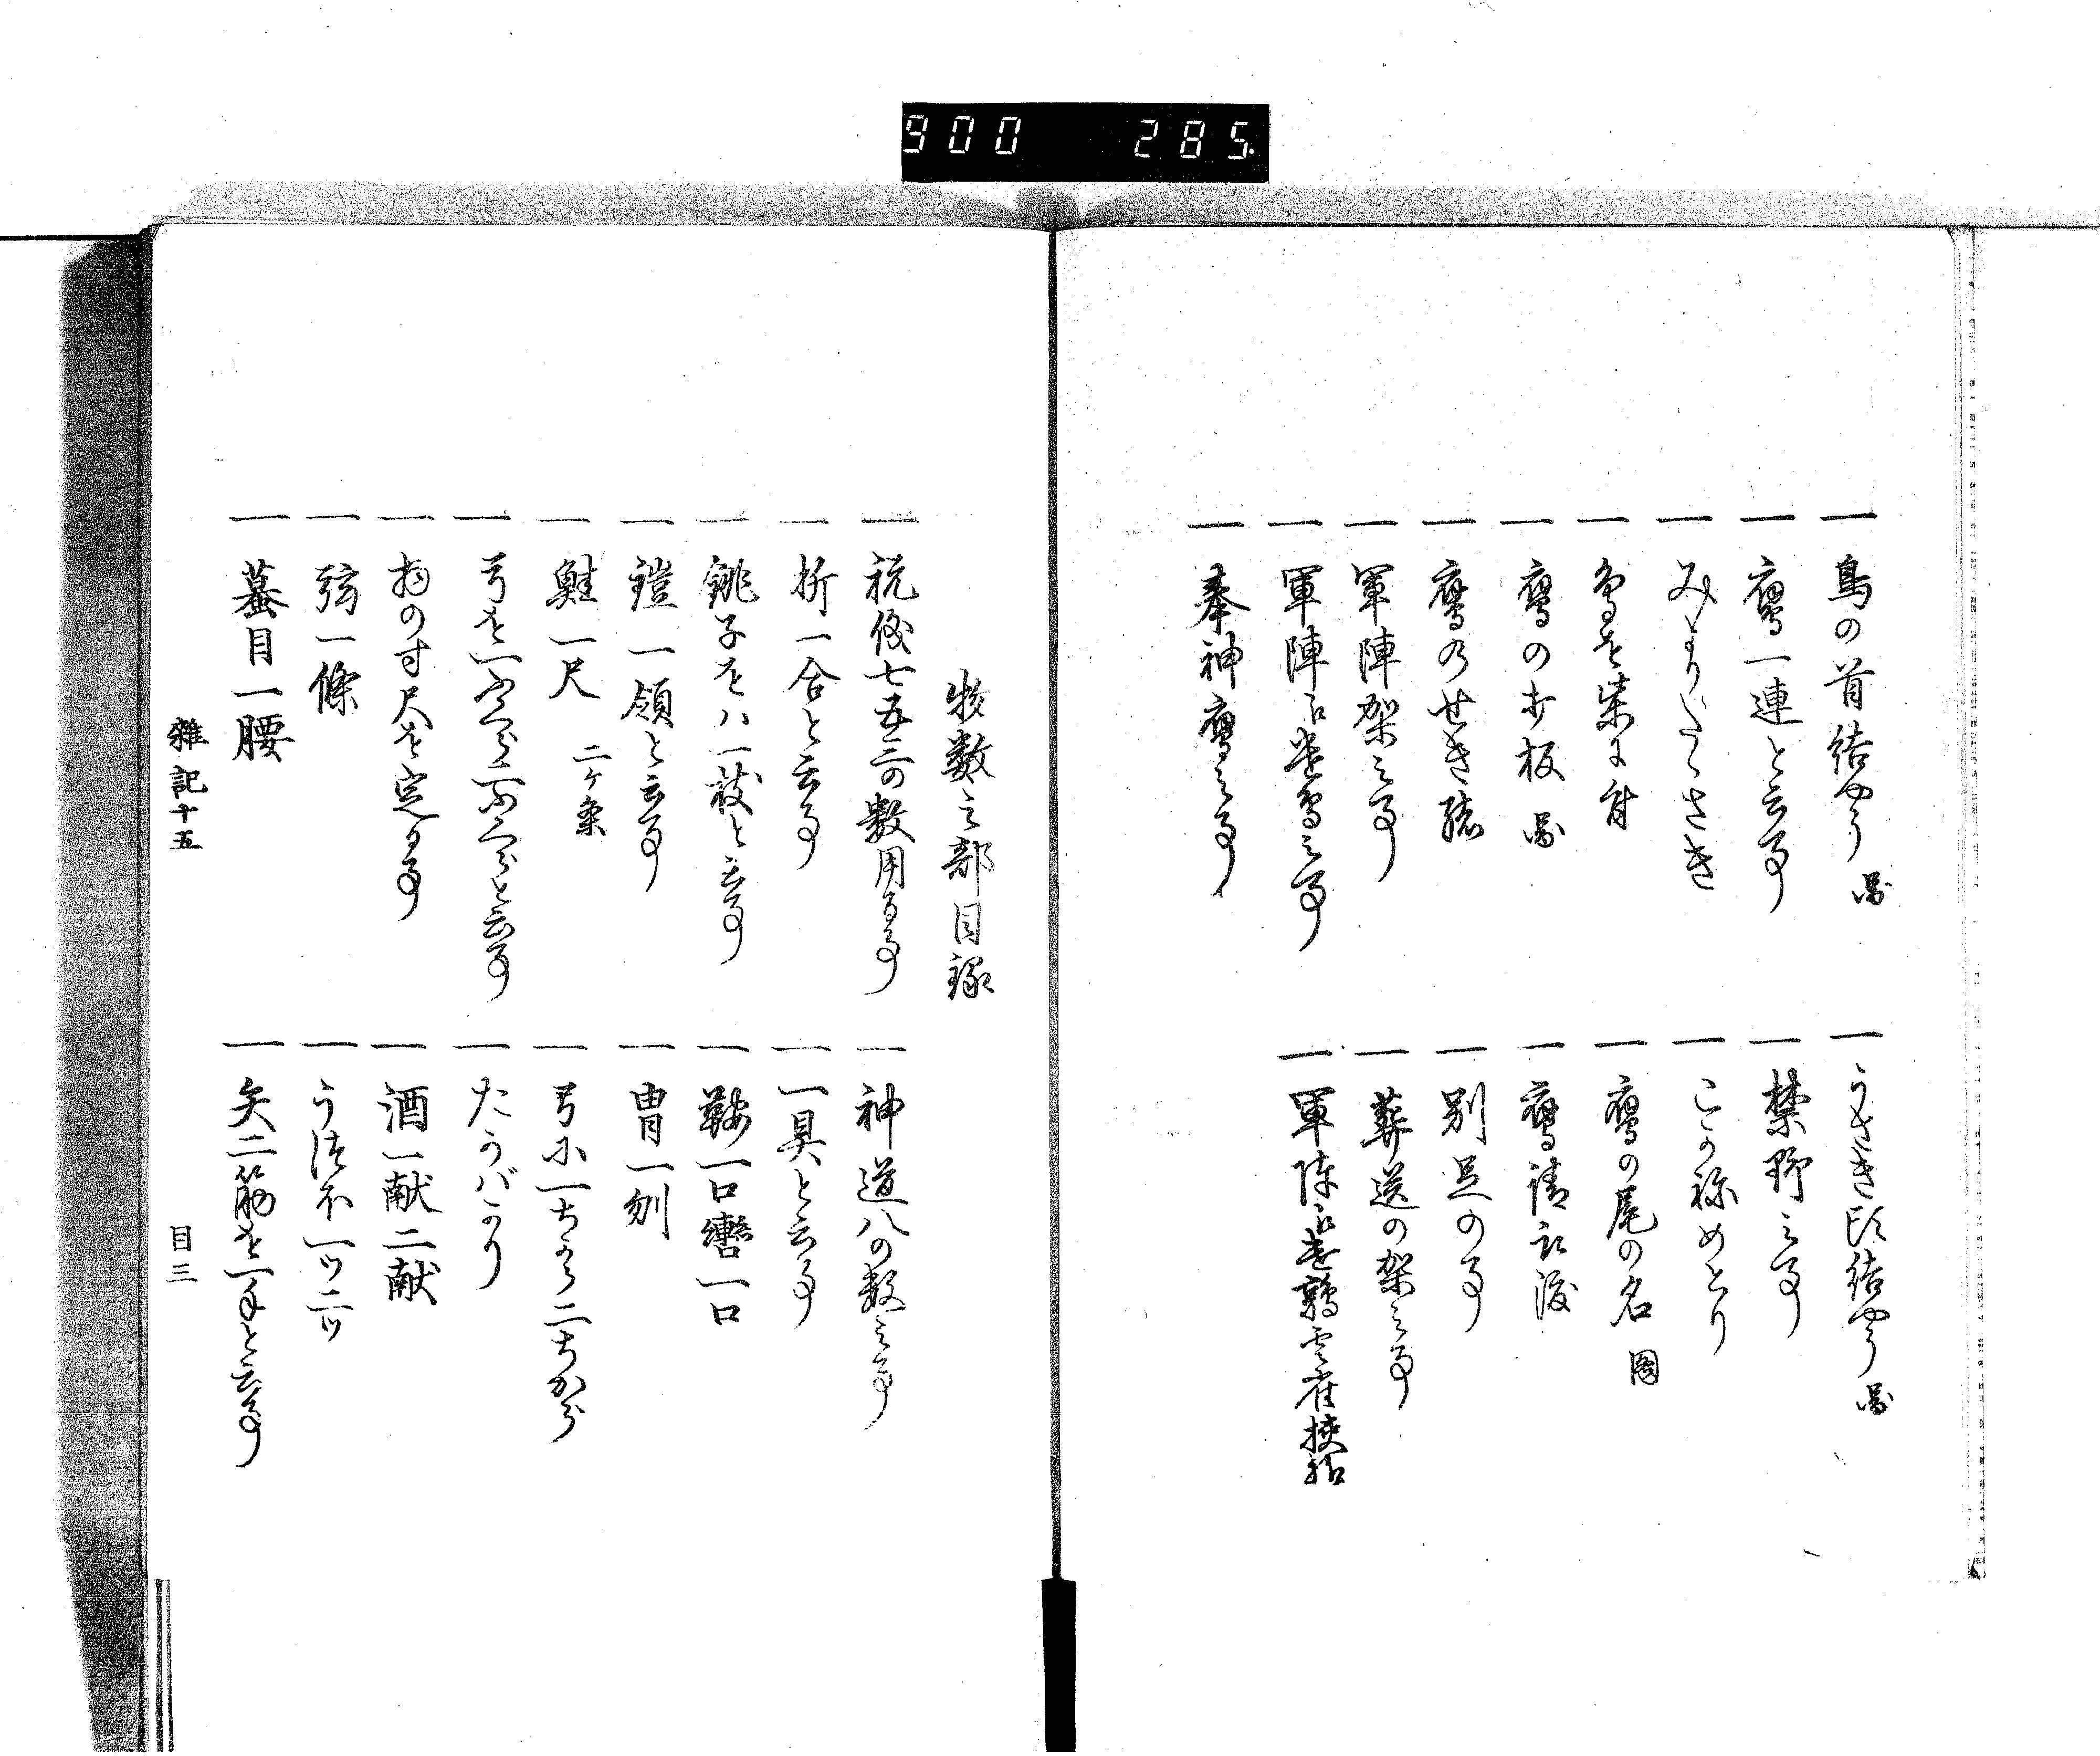 900 285
一 鳥の首結やう 図
一 鷹一連と云事
一 みより たゝさき
一 鳥を柴に付
一 鷹の打板 図
一 鷹のせき緒
一 軍陣架之事
一 軍陣ニ居鳥之事
一 奉神鷹之事
一 うさき頭結やう 図
一 禁野之事
一 こかねめとり
一 鷹の尾の名 図
一 鷹請取渡
一 別足の事
一 葬送の架之事
一 軍陣ニ居鶉雲雀挟
物数之部目録
一 祝儀七五三の数用る事
一 折一合と云事
一 銚子をハ一枝と云事
一 鎧一領と云事
一 鮭一尺 二ケ条
一 弓を
一 物の寸尺を定る事
一 弦一條
一 蟇目一腰
一 神道八の数之事
一 一具と云事
一 鞍一口轡一口
一 冑一刎
一 弓に一ちから二ちから
一 たかバかり
一 酒一献二献
一 うつほ一ツ二ツ
一 矢二筋を一手と云事
雑記十五
目三